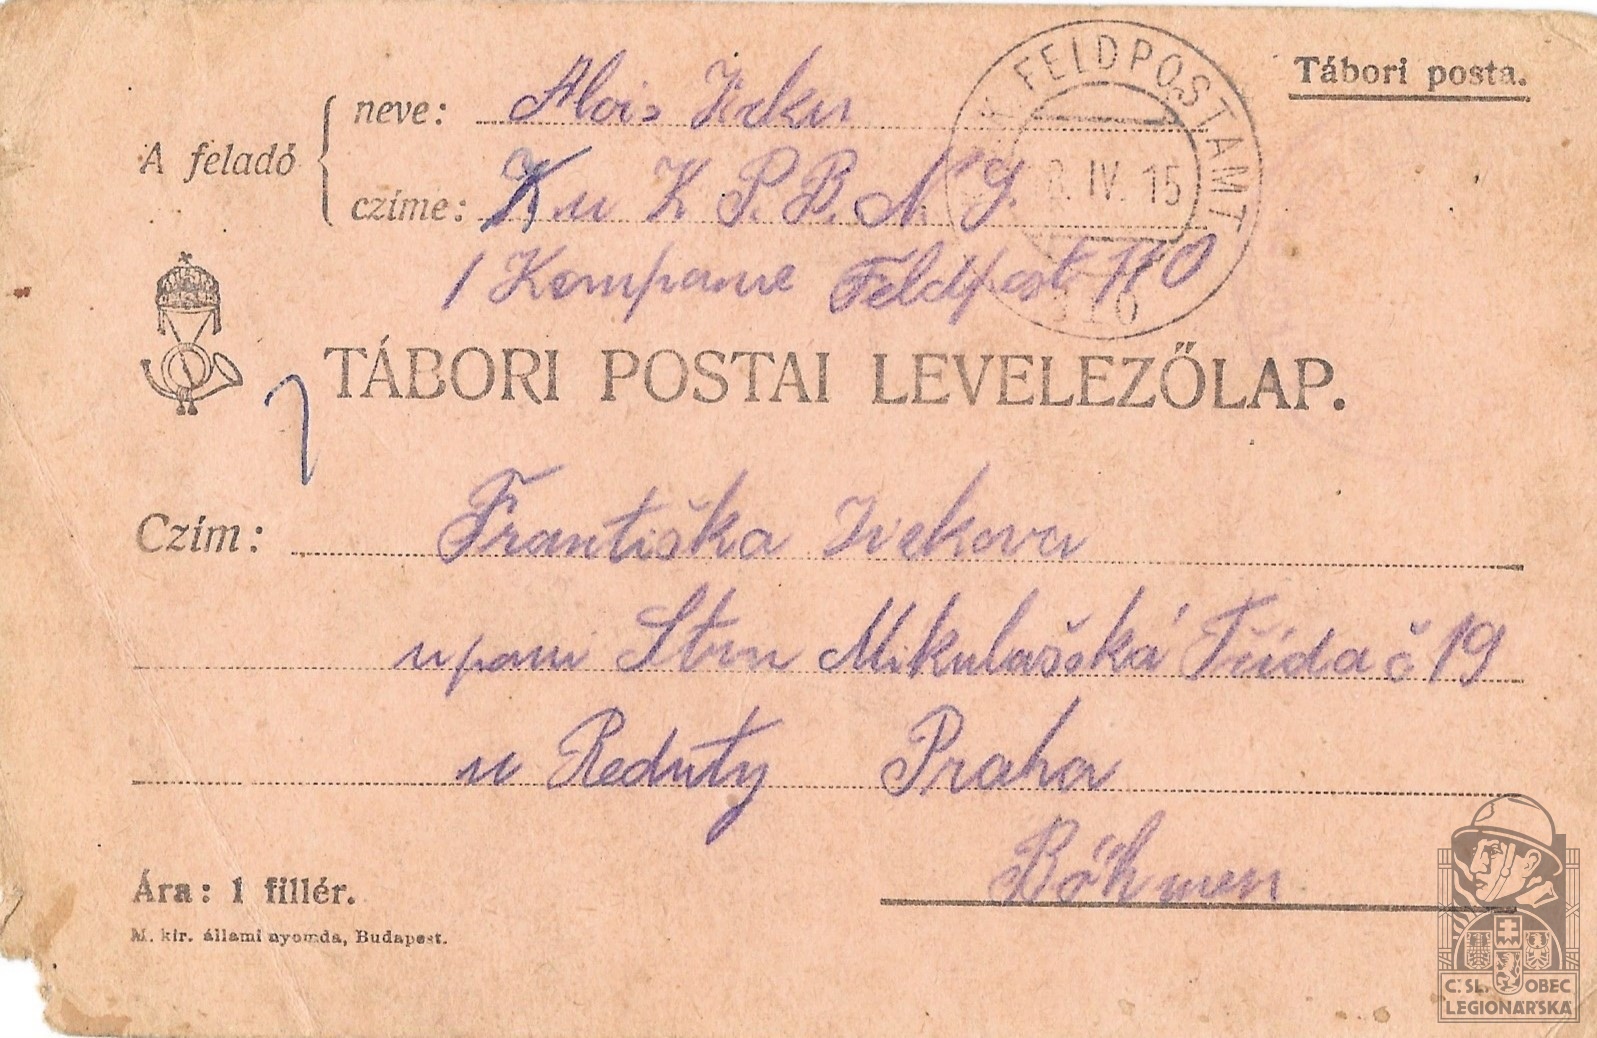 Tábori posta.
K. FELDPOSTAMT
IV. 15
310
A feladó
neve: Alois
czíme: K u K P. B. N
1 Kompanie Feldpost 110
TÁBORI POSTAI LEVELEZŐLAP.
Czím: Františka
u paní Mikulašská Třída č 19
u Reduty Praha
Böhmen
Ára: 1 fillér.
M. kir. állami nyomda, Budapest.
Č. SL. OBEC
LEGIONÁŘSKÁ